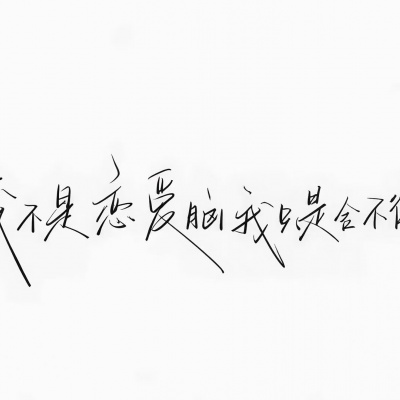 我不是恋爱脑我只是舍不得